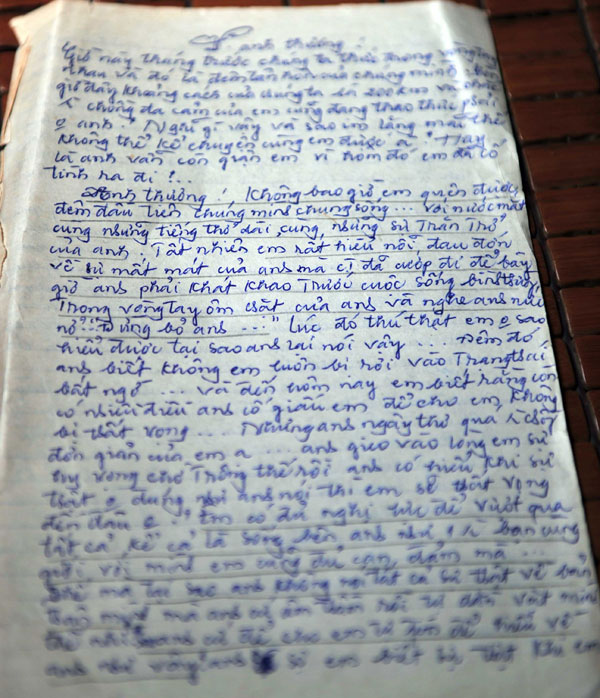 anh thương !
Giờ này tháng trước chúng ta thức trong vòng tay
nhau và đó là đêm của chúng mình
giờ đây khoảng cách của chúng ta là 200km
đa cảm của em cũng đang thao thức
Nghĩ gì vậy và sao im lặng mãi thế
không thể kể chuyện cùng em được ạ ! Hay
là anh vẫn còn giận em vì hôm đó em đã cố
tình ra đi !...
Anh thương ! Không bao giờ em quên được
đêm đầu tiên chúng mình chung sống ... với nước mắt
cùng những tiếng thở dài, cùng những sự Trăn Trở
của anh ! Tất nhiên em rất hiểu nỗi đau đớn
về sự mất mát của anh mà đã cướp đi để bây
giờ anh phải khát khao Trước cuộc sống bình thường
Trong vòng tay ôm chặt của anh và nghe anh nói
"Đừng bỏ anh ..." lúc đó thú thật em sao
hiểu được tại sao anh lại nói vậy ... Đêm đó
anh biết không em luôn bị rơi vào Trạng thái
bất ngờ ... và đến hôm nay em biết rằng còn
có nhiều điều anh cố giấu em để cho em không
bị thất vọng ... Nhưng anh ngây thơ quá
đơn giản của em ạ ... anh gieo vào lòng em sự
hy vọng chờ Trông thế rồi anh có hiểu khi sự
thật đúng như anh nói thì em sẽ thất vọng
đến đâu Em có đủ nghị lực để vượt qua
tất cả, kể cả là sống bên anh như bạn cùng
giới với mình em cũng đủ can đảm mà ...
thế mà tại sao anh không nói tất cả sự thật về bản
thân mà anh cứ âm thầm rồi tự dằn vặt mình
anh cứ để cho em tự tìm để hiểu về
anh như vậy anh sợ em biết sự thật thì em